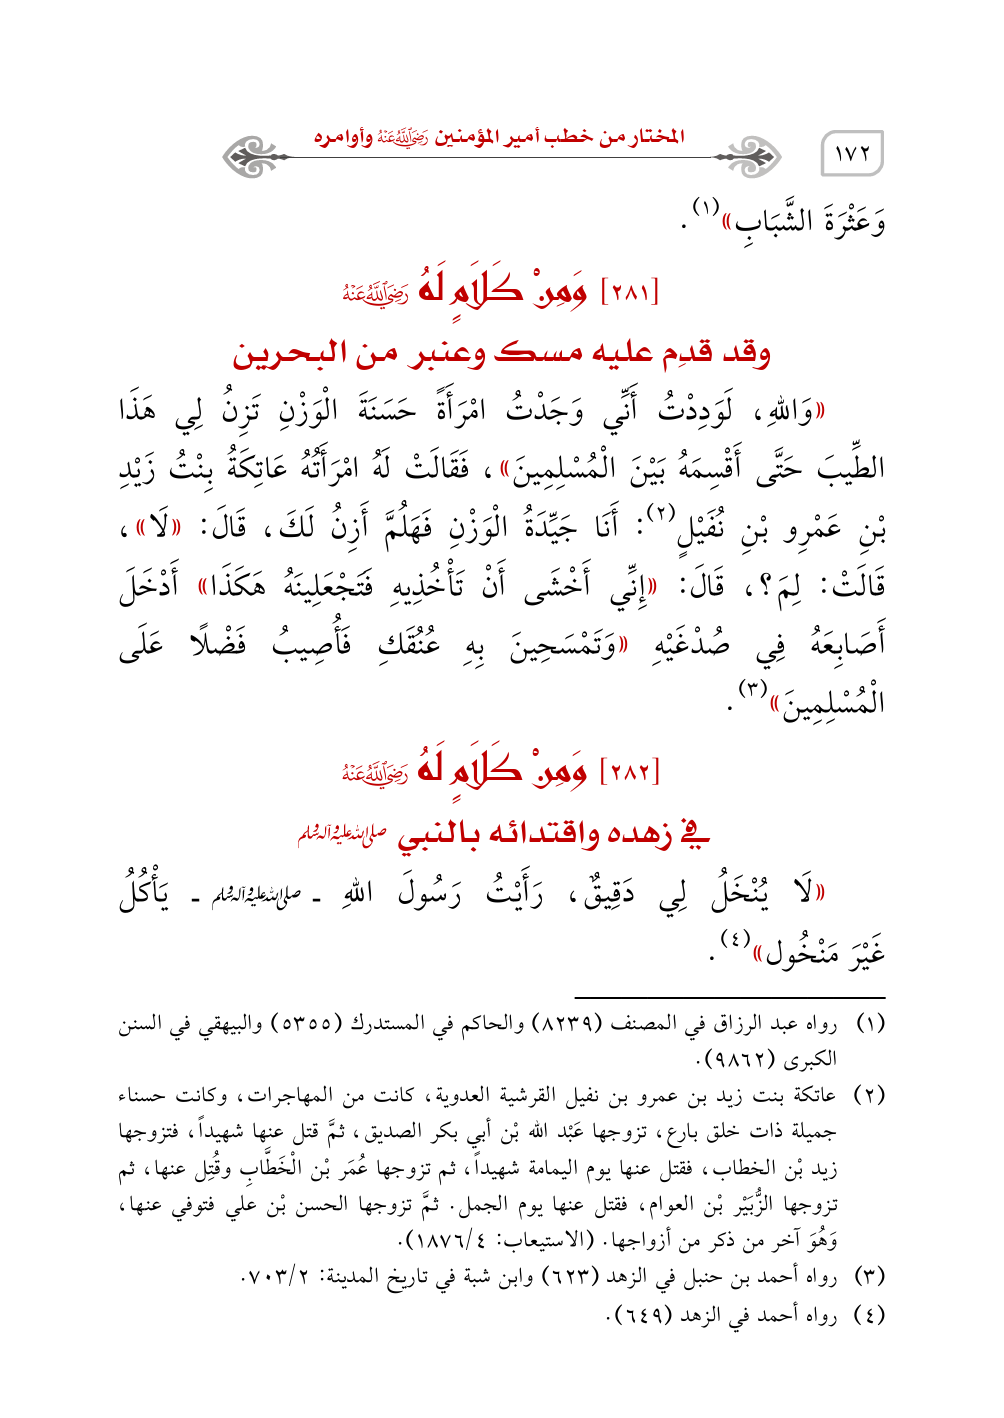 ١٧٢
المختار من خطب أمير المؤمنين رَضِيَ اللَّهُ عَنْهُ وأوامره
وَعَثْرَةَ الشَّبَابِ»(١).
[٢٨١] وَمِنْ كَلَامٍ لَهُ رَضِيَ اللَّهُ عَنْهُ
وقد قدِم عليه مسك وعنبر من البحرين
«وَاللهِ، لَوَدِدْتُ أَنِّي وَجَدْتُ امْرَأَةً حَسَنَةَ الْوَزْنِ تَزِنُ لِي هَذَا
الطِّيبَ حَتَّى أَقْسِمَهُ بَيْنَ الْمُسْلِمِينَ»، فَقَالَتْ لَهُ امْرَأَتُهُ عَاتِكَةُ بِنْتُ زَيْدِ
بْنِ عَمْرِو بْنِ نُفَيْلٍ(٢): أَنَا جَيِّدَةُ الْوَزْنِ فَهَلُمَّ أَزِنُ لَكَ، قَالَ: «لَا»،
قَالَتْ: لِمَ؟، قَالَ: «إِنِّي أَخْشَى أَنْ تَأْخُذِيهِ فَتَجْعَلِينَهُ هَكَذَا» أَدْخَلَ
أَصَابِعَهُ فِي صُدْغَيْهِ «وَتَمْسَحِينَ بِهِ عُنُقَكِ فَأُصِيبُ فَضْلًا عَلَى
الْمُسْلِمِينَ»(٣).
[٢٨٢] وَمِنْ كَلَامٍ لَهُ رَضِيَ اللَّهُ عَنْهُ
في زهده واقتدائه بالنبي صلى الله عليه وآله وسلم
«لَا يُنْخَلُ لِي دَقِيقٌ، رَأَيْتُ رَسُولَ اللهِ ـ صلى الله عليه وآله وسلم ـ يَأْكُلُ
غَيْرَ مَنْخُول»(٤).
(١) رواه عبد الرزاق في المصنف (٨٢٣٩) والحاكم في المستدرك (٥٣٥٥) والبيهقي في السنن
الكبرى (٩٨٦٢).
(٢) عاتكة بنت زيد بن عمرو بن نفيل القرشية العدوية، كانت من المهاجرات، وكانت حسناء
جميلة ذات خلق بارع، تزوجها عَبْد الله بْن أبي بكر الصديق، ثمَّ قتل عنها شهيداً، فتزوجها
زيد بْن الخطاب، فقتل عنها يوم اليمامة شهيداً، ثم تزوجها عُمَر بْن الْخَطَّابِ وقُتِل عنها، ثم
تزوجها الزُّبَيْر بْن العوام، فقتل عنها يوم الجمل. ثمَّ تزوجها الحسن بْن علي فتوفي عنها،
وَهُوَ آخر من ذكر من أزواجها. (الاستيعاب: ٤/١٨٧٦).
(٣) رواه أحمد بن حنبل في الزهد (٦٢٣) وابن شبة في تاريخ المدينة: ٢/٧٠٣.
(٤) رواه أحمد في الزهد (٦٤٩).